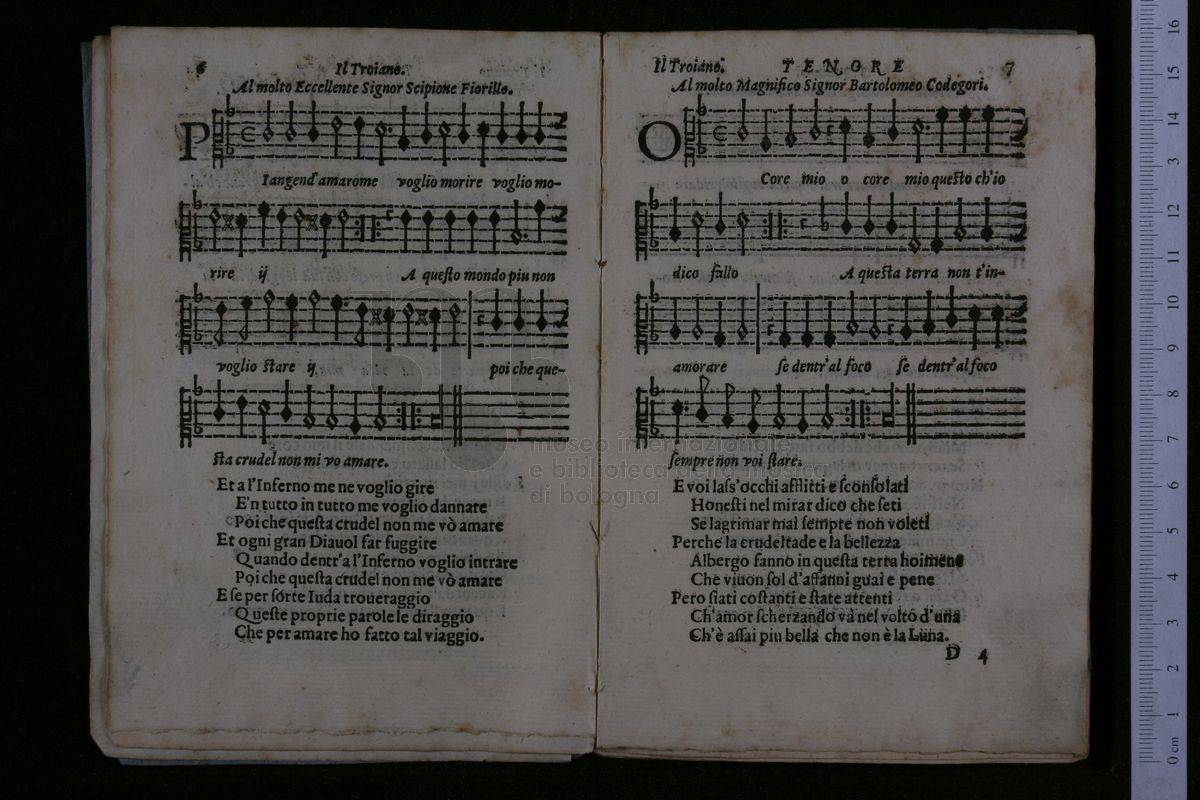 6
Il Troiano.
Al molto Eccellente Signor Scipione Fiorillo.
P
Iangend'amarome voglio morire voglio mo-
rire ij A questo mondo piu non
voglio stare ij poi che que-
sta crudel non mi vo amare.
Et a l'Inferno me ne voglio gire
E'n tutto in tutto me voglio dannare
Poi che questa crudel non me vò amare
Et ogni gran Diauol far fuggire
Quando dentr'a l'Inferno voglio intrare
Poi che questa crudel non me vò amare
E se per sorte Iuda troueraggio
Queste proprie parole le diraggio
Che per amare ho fatto tal viaggio.
Il Troiano. TENORE 7
Al molto Magnifico Signor Bartolomeo Codegori.
O
Core mio o core mio questo ch'io
dico fallo A questa terra non t'in-
amorare se dentr'al foco se dentr'al foco
sempre non voi stare.
E voi lass'occhi afflitti e sconsolati
Honesti nel mirar dico che seti
Se lagrimar mai sempre non voleti
Perche la crudeltade e la bellezza
Albergo fanno in questa terra hoimene
Che viuon sol d'affanni guai e pene
Pero siati costanti e state attenti
Ch'amor scherzando và nel volto d'una
Ch'è assai piu bella che non è la Luna.
D 4
museo internazionale
e biblioteca della musica
di bologna
0 cm 1 2 3 4 5 6 7 8 9 10 11 12 13 14 15 16